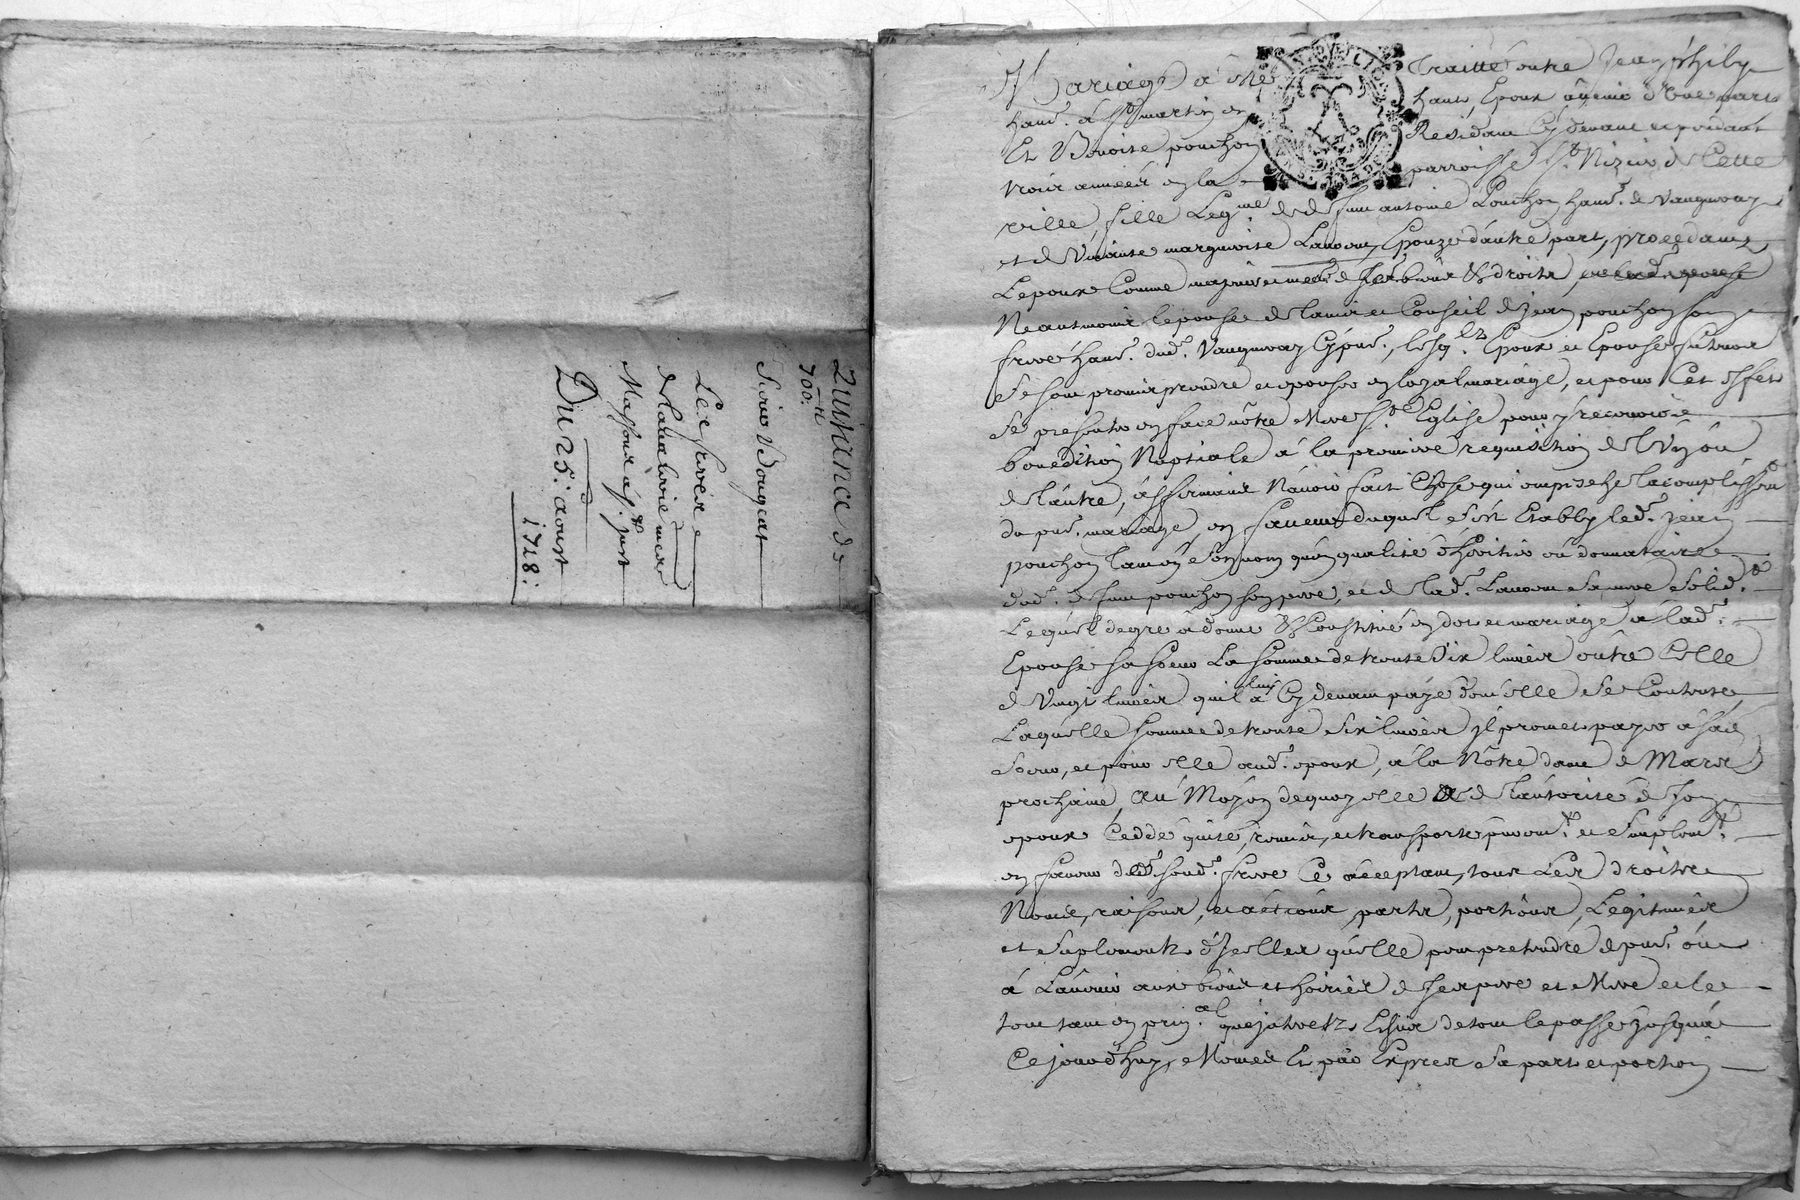 Quittance de
700.ᵗᵗ
Sieur Vougeat
Les freres
Massons à sᵗ just
Du 25: aoust
1728:
Mariage a esté traitté entre Jean
habᵗ. à Sᵗ martin en
Et Benoite ponchon Residante cy devant et pendant
trois années en la parroisse sᵗ. Nizier de Cette
ville, fille Legᵐᵉ. de deffunt antoine Ponchon habᵗ. de Vaugneray
et de Vivante marguerite Epouze d'autre part, procedants
L'epoux Comme majeur et me de ses biens & droits,
Neantmoins l'epouse de l'avis et Conseil de jean ponchon son
frere habᵗ. dudᵗ. Vaugneray cy pnt., lesq.ˡˢ Epoux et Epouse futurs
Se sont promis prendre et epouser en loyal mariage, et pour Cet effet
Se presenter en face nôtre Mere Sᵗᵉ Eglise pour y recevoir
benediction Nuptiale à la premiere requisition de l'Un ou
de l'autre, affirmants N'avoir fait Chose qui empeche l'acomplissemᵗ
du pnt. mariage, en faveur duquel s'est Etably ledᵗ. jean
ponchon tant en son nom qu'en qualité d'heritier ou donnataire
dudᵗ. deffunt ponchon son pere, et de ladᵗ. sa mere
Lequel de gré a donné & Constitué en dot et mariage à ladᵗ.
Epouse sa soeur La somme de trente six livres outre Celle
de Vingt livres qu'il luy a Cy devant payé dont elle se Contente,
Laquelle somme de trente six livres il promet payer à sad.
soeur, et pour elle audᵗ. epoux, à la Nôtre dame de Mars
prochaine, au Moyen de quoy elle de l'autorité de son
epoux Cedde quitte, remet, et transporte puremᵗ. et simplemᵗ.
en faveur de sondᵗ. frere Ce acceptant, tous Les droits
Noms, raisons, et actions, parts, portions, Legitimes
et suplements d'Jcelles qu'elle peut pretendre de pnt. ou
à L'avenir aux biens et hoiries de ses pere et Mere et le
tout tant en prinᵃˡ. qu'jnterets Echus de tout le passé jusqu'à
Ce jourd'huy, Nommé Et par Exprès sa part et portion